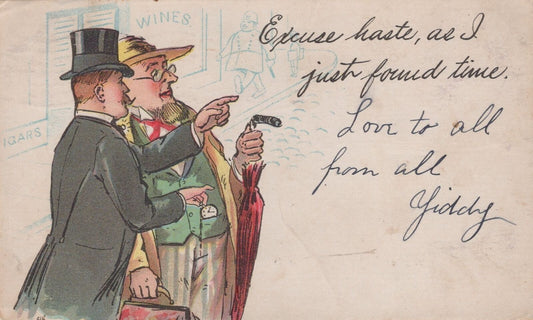 WINES
IGARS
Excuse haste, as I
just found time.
Love to all
from all
Yiddy